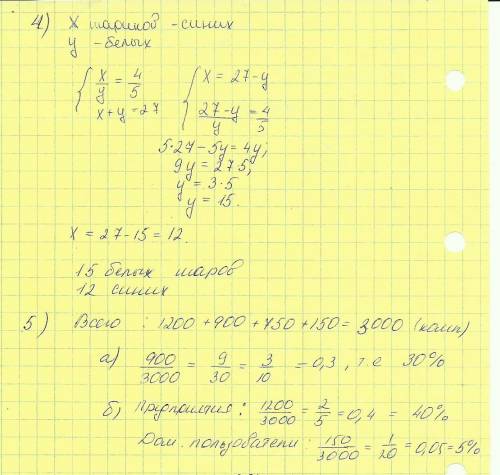 4) X шариков - синих
y - белых
{ x/y = 4/5 { x = 27 - y
x + y = 27 (27 - y)/y = 4/5
5·27 - 5y = 4y;
9y = 27·5;
y = 3·5
y = 15.
X = 27 - 15 = 12.
15 белых шаров
12 синих
5) Всего : 1200 + 900 + 750 + 150 = 3000 (комп)
а) 900/3000 = 9/30 = 3/10 = 0,3, т.е 30%
б) Предприятия: 1200/3000 = 2/5 = 0,4 = 40%
Дом. пользователи: 150/3000 = 1/20 = 0,05 = 5%